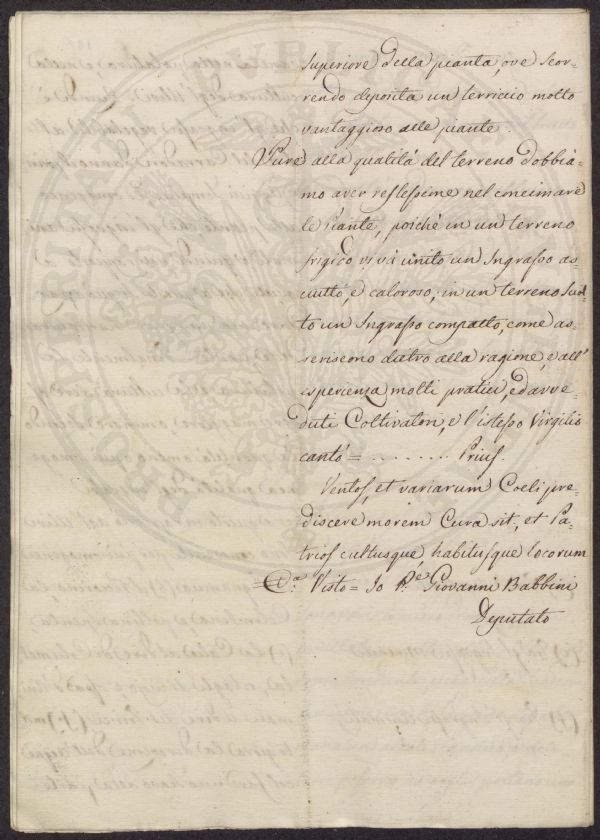 superiore della pianta, ove scor-
rendo deposita un terriccio molto
vantaggioso alle piante.
Pure alla qualità del terreno dobbia-
mo aver reflessione nel concimare
le Piante, poichè in un terreno
frigido vi và unito un Ingrasso as-
ciutto, e caloroso; in un terreno sud-
to un Ingrasso compatto, come as-
seriscono dietro alla ragione, e all'
esperienza molti pratici, ed avve-
duti Coltivatori, e l'istesso Virgilio
cantò = . . . . . . . . Prius.
Ventos, et variarum Coeli pre-
discere morem Cura sit, et Pa-
trios cultusque, habitusque locorum
Visto = Io P.e Giovanni Babbini
Deputato